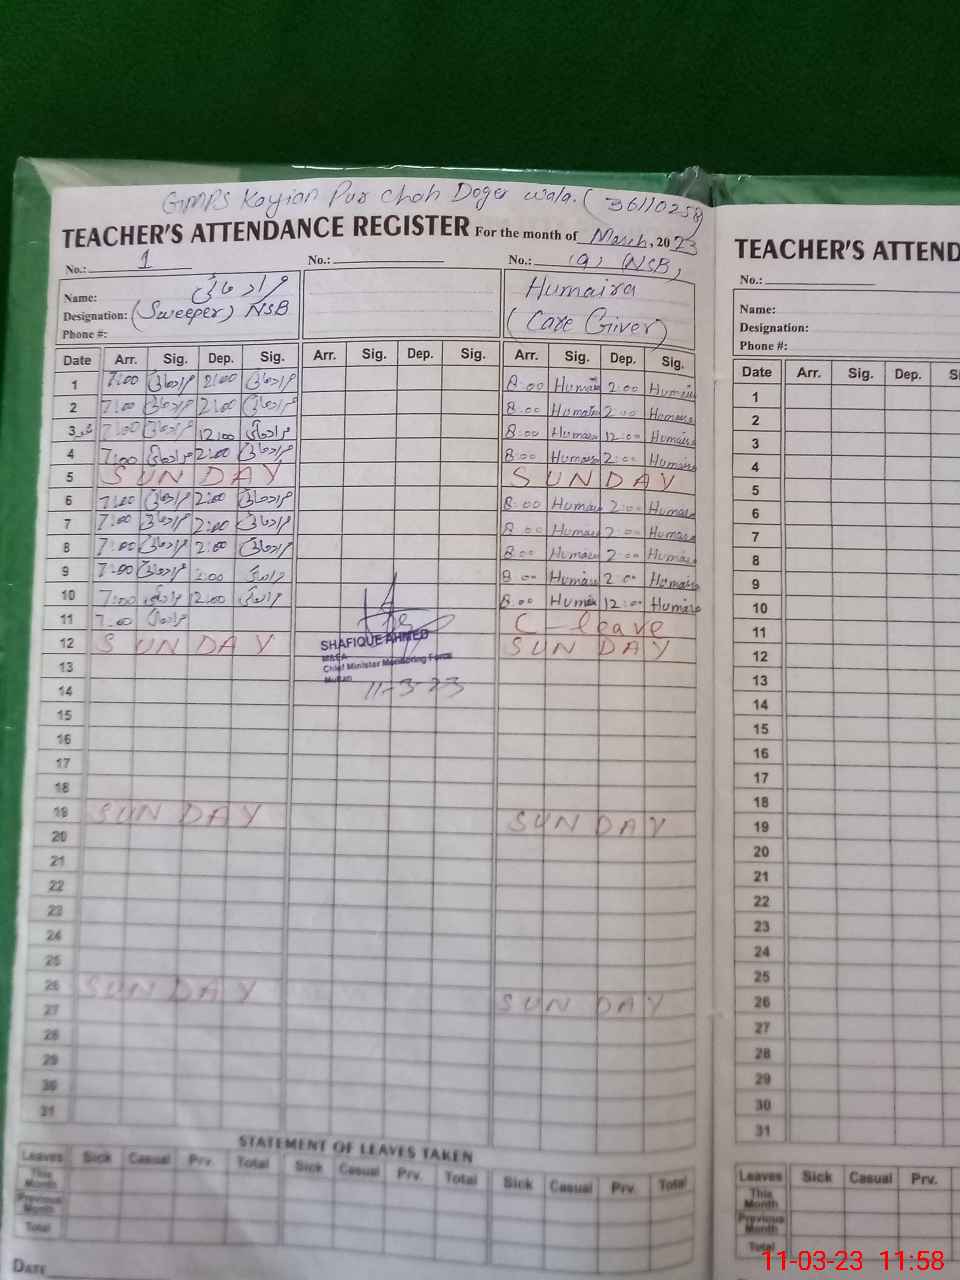 GMPS Kayian Pur Chah Doger wala. (36110258)
TEACHER'S ATTENDANCE REGISTER For the month of March, 2023
No.: 1 No.: No.: (9) (NSB)
Name: Humaira
Designation: (Sweeper) NSB (Care Giver)
Phone #:
Date Arr. Sig. Dep. Sig. Arr. Sig. Dep. Sig. Arr. Sig. Dep. Sig.
1 7:00 2:00 8:00 Humaira 2:00 Humaira
2 7:00 2:00 8:00 Humaira 2:00 Humaira
3 7:00 12:00 8:00 Humaira 12:00 Humaira
4 7:00 2:00 8:00 Humaira 2:00 Humaira
5 SUNDAY SUNDAY
6 7:00 2:00 8:00 Humaira 2:00 Humaira
7 7:00 2:00 8:00 Humaira 2:00 Humaira
8 7:00 2:00 8:00 Humaira 2:00 Humaira
9 7:00 2:00 8:00 Humaira 2:00 Humaira
10 7:00 12:00 8:00 Humaira 12:00 Humaira
11 7:00 C-leave
12 SUNDAY SUNDAY
SHAFIQUE AHMED
M&EA
Chief Minister Monitoring Force
Multan
11-3-23
13
14
15
16
17
18
19 SUNDAY SUNDAY
20
21
22
23
24
25
26 SUNDAY SUNDAY
27
28
29
30
31
STATEMENT OF LEAVES TAKEN
Leaves Sick Casual Prv. Total Sick Casual Prv. Total Sick Casual Prv. Total
This Month
Previous Month
Total
DATE
TEACHER'S ATTEND
No.:
Name:
Designation:
Phone #:
Date Arr. Sig. Dep. S
1
2
3
4
5
6
7
8
9
10
11
12
13
14
15
16
17
18
19
20
21
22
23
24
25
26
27
28
29
30
31
Leaves Sick Casual Prv.
This Month
Previous Month
Total
11-03-23 11:58